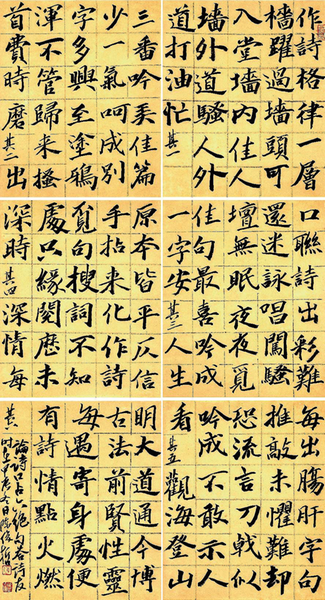 作詩格律一層
檣躍過墻頭可
入堂墻内佳人
墻外道騷人外
道打油忙 其一
三番吟羙佳篇
少一氣呵成别
字多興至塗鴉
渾不管歸来搔
首費時磨 其二 出
口聯詩出彩難
還迷詠唱闖騷
壇無眠夜夜覓
佳句最喜吟成
一字安 其三 人生
原本皆平仄信
手拈来化作詩
覓句搜詞不知
處只緣閲歷未
深時 其四 深情每
每出腸肝
推敲未懼難却
恐流言刀戟似
吟成不敢示人
看 其五 觀海登山
明大道通今博
古法前賢性靈
每遇寄身處便
有詩情點火燃
其六 論詩口占六絶句答詩友
時在甲辰冬日